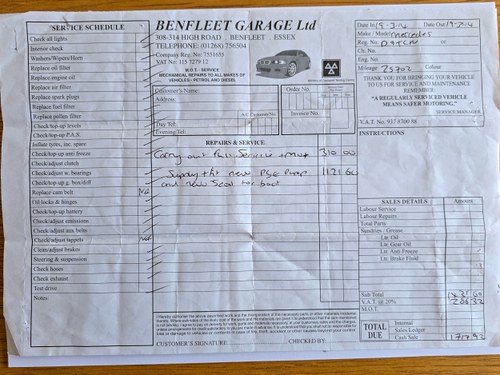 SERVICE SCHEDULE
Check all lights
Interior check
Washers/Wipers/Horn
Replace oil filter
Replace engine oil
Replace air filter
Replace spark plugs
Replace fuel filter
Replace pollen filter
Check/top up levels
Check/top up P.A.S.
Inflate tyres, inc. spare
Check/top up anti freeze
Check/adjust clutch
Check/adjust w. bearings
Check/top up g. box/diff
Replace cam belt
Oil locks & hinges
Check/top up battery
Check/adjust emissions
Check/adjust aux belts
Check/adjust tappets
Clean/adjust brakes
Steering & suspension
Check hoses
Check exhaust
Test drive
Notes
BENFLEET GARAGE Ltd
308-314 HIGH ROAD . BENFLEET . ESSEX
TELEPHONE: (01268) 756504
Company Reg No: 7551655
VAT No 115 7279 12
M.O.T. - SERVICE
MECHANICAL REPAIRS TO ALL MAKES OF
VEHICLES - PETROL AND DIESEL
Customer's Name:
Order No
Address:
Day Tel:
Evening Tel:
Invoice No.
REPAIRS & SERVICE:
Carry out Full Service + Mot 310 00
Supply + fit new 1121 60
and new Seal for boot
CUSTOMER'S SIGNATURE
CHECKED BY
Date In 19-2-14 Date Out 19-2-14
Make / Model Mercedes
Reg. No.
Ch. No.
Eng. No
Mileage 25702 Colour
THANK YOU FOR BRINGING YOUR VEHICLE
TO US FOR SERVICE AND MAINTENANCE
REMEMBER
"A REGULARLY SERVICED VEHICLE
MEANS SAFER MOTORING."
SERVICE MANAGER
V.A.T. No. 937 8700 86
INSTRUCTIONS
SALES DETAILS Amount
Labour Service
Labour Repairs
Total Parts
Sundries / Grease
Ltr. Oil
Ltr. Gear Oil
Ltr. Anti Freeze
Ltr. Brake Fluid
Sub Total 1431 60
V.A.T. @ 20% 286 32
M.O.T.
TOTAL DUE
Internal
Sales Ledger
Cash Sale 1717.92